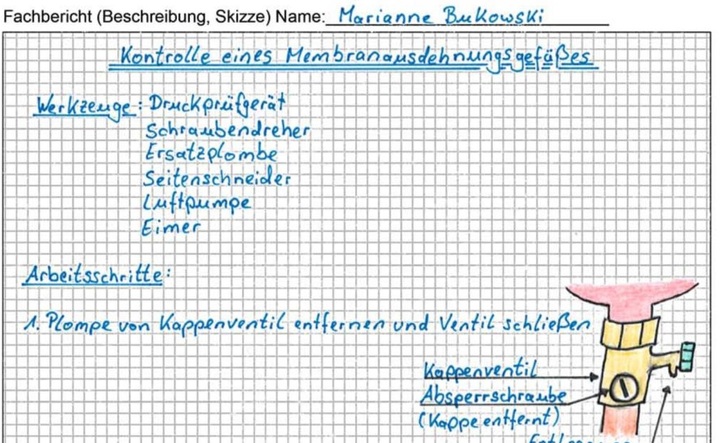 Fachbericht (Beschreibung, Skizze) Name: Marianne Bukowski
Kontrolle eines Membranausdehnungsgefäßes
Werkzeuge: Druckprüfgerät
Schraubendreher
Ersatzplombe
Seitenschneider
Luftpumpe
Eimer
Arbeitsschritte:
1. Plompe von Kappenventil entfernen und Ventil schließen
Kappenventil
Absperrschraube
(Kappe entfernt)